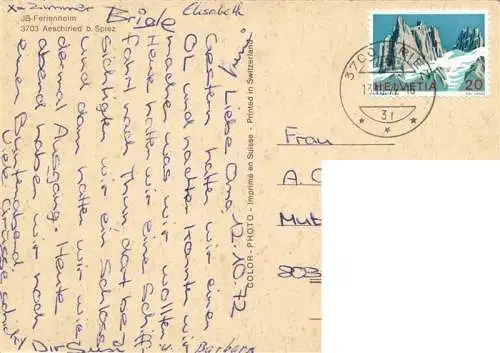 JB-Ferienheim
3703 Aeschiried b. Spiez
Elisabeth
12.10.72
Liebe Oma!
Gestern hatten wir einen
OL und nachher konnten wir
machen was wir wollten.
Heute hatten wir eine Schiff-
fahrt nach Thun dort be-
sichtigten wir ein Schloss
und dann hatten wir wie-
dermal Ausgang. Heute
abend haben wir noch
einen Bunten abend.
Viele Grüsse schickt
Dir Susi
Barbara
COLOR-PHOTO - Imprimé en Suisse - Printed in Switzerland
HELVETIA 20
3700 SPIEZ
Frau
A.